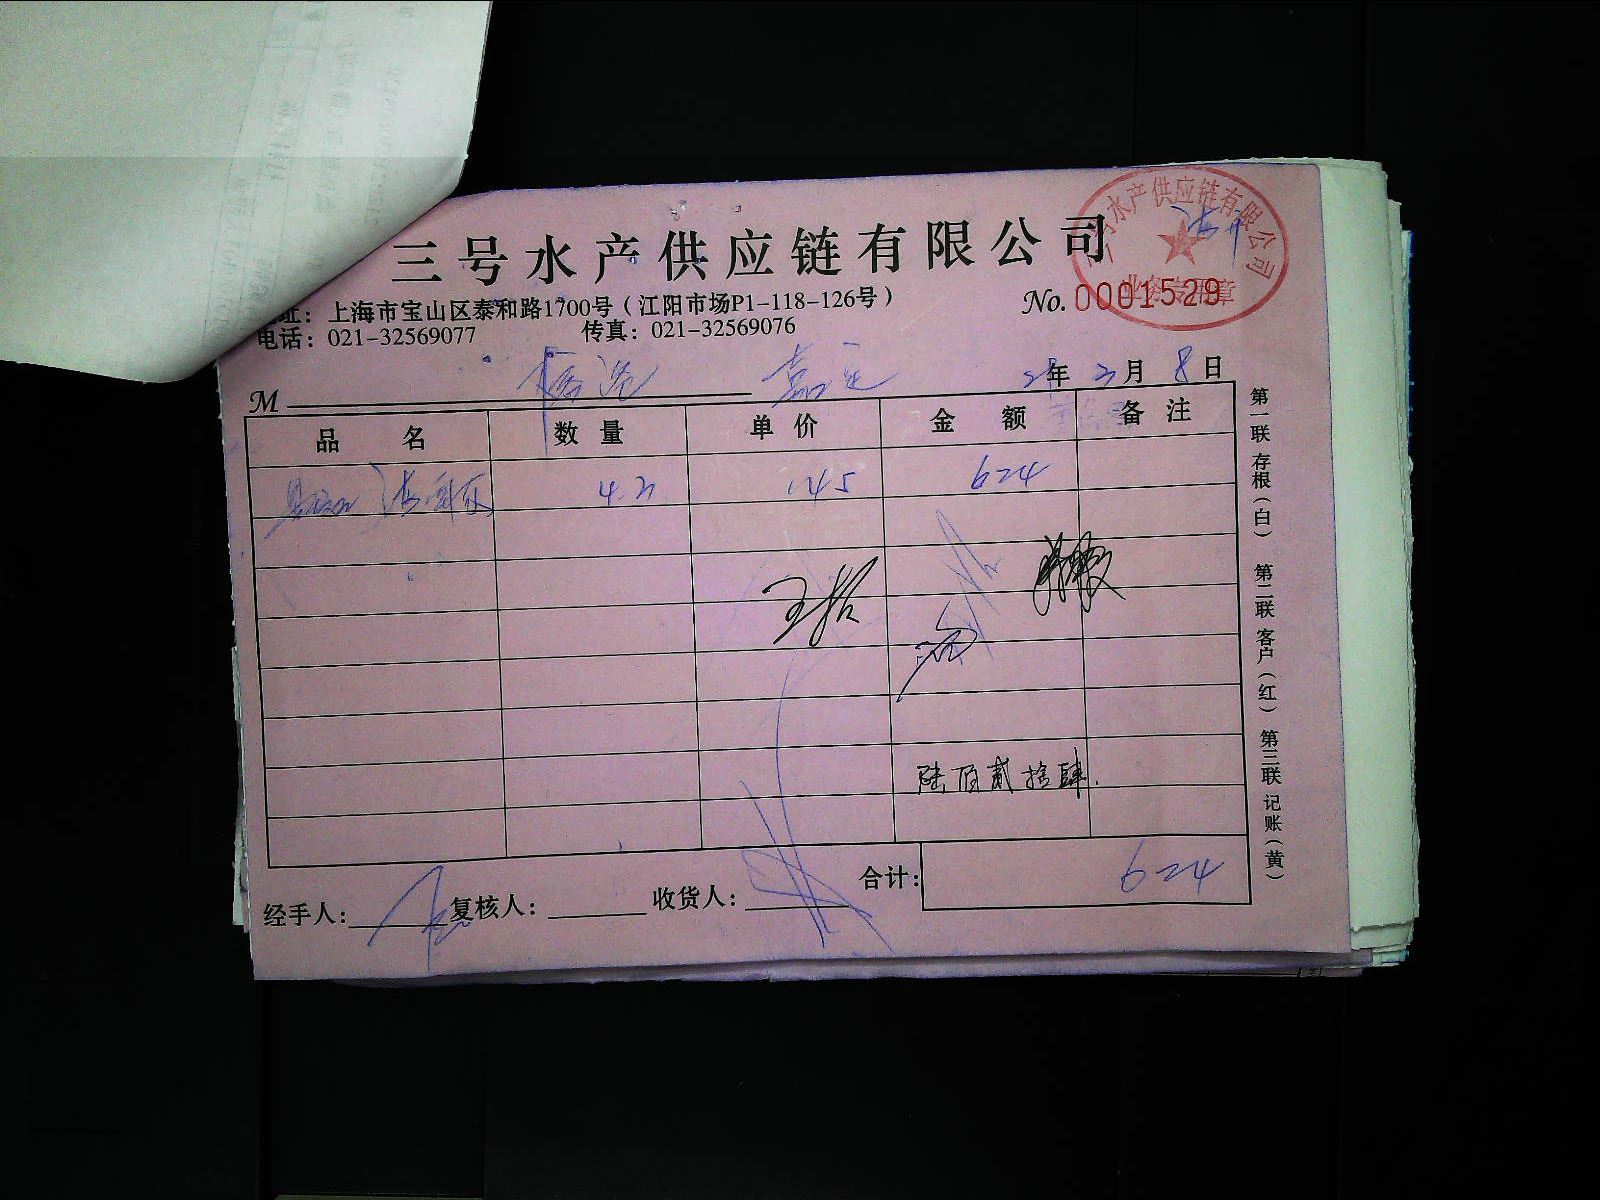 三号水产供应链有限公司
三号水产供应链有限公司
业务专用章
址：上海市宝山区泰和路1700号（江阳市场P1-118-126号）
No. 0001529
电话：021-32569077 传真：021-32569076
M 嘉定 年 月 8 日
品名 数量 单价 金额 备注
145 624
陆佰贰拾肆.
合计： 624
经手人： 复核人： 收货人：
第一联 存根（白） 第二联 客户（红） 第三联 记账（黄）